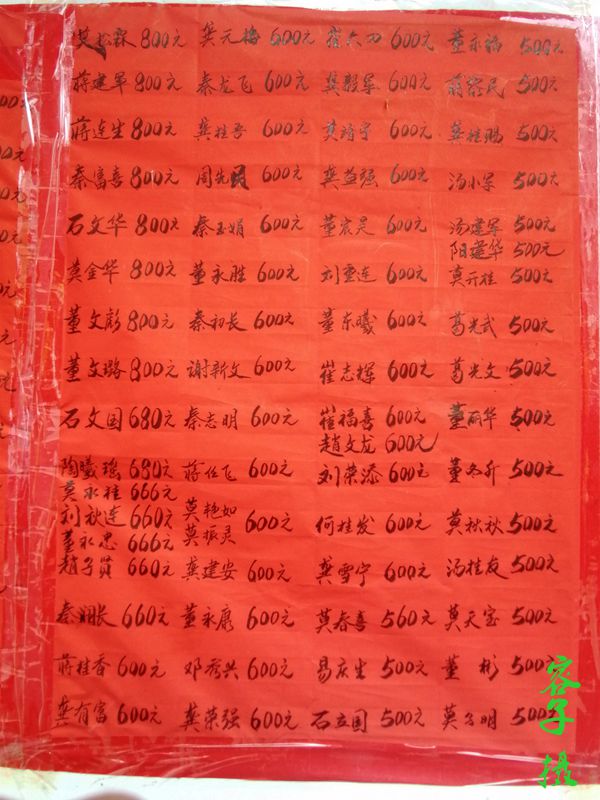 莫松霖 800元 龚元梅 600元 崔六四 600元 董永福 500元
蒋建军 800元 秦龙飞 600元 龚毅军 600元 蒋民 500元
蒋连生 800元 龚桂香 600元 莫靖宇 600元 龚桂鹏 500元
秦富喜 800元 周先民 600元 龚益强 600元 汤小军 500元
石文华 800元 秦玉娟 600元 董宸昊 600元 汤建军 500元
阳建华 500元
莫金华 800元 董永胜 600元 刘重连 600元 莫开桂 500元
董文彪 800元 秦初长 600元 董东曦 600元 葛光武 500元
董文璐 800元 谢新文 600元 崔志辉 600元 葛光文 500元
石文国 680元 秦志明 600元 崔福喜 600元 董丽华 500元
赵文龙 600元
陶曦瑶 680元 蒋任飞 600元 刘荣添 600元 董冬升 500元
莫永桂 666元
刘秋连 660元 莫艳如 莫振灵 600元 何桂发 600元 莫秋秋 500元
董永忠 666元
赵子贤 660元 龚建安 600元 龚雪宁 600元 汤桂友 500元
秦娴长 660元 董永康 600元 莫春喜 560元 莫天宝 500元
蒋桂香 600元 邓秀兴 600元 易庆生 500元 董彬 500元
龚有富 600元 龚荣强 600元 石立国 500元 莫明 500元
容子摄